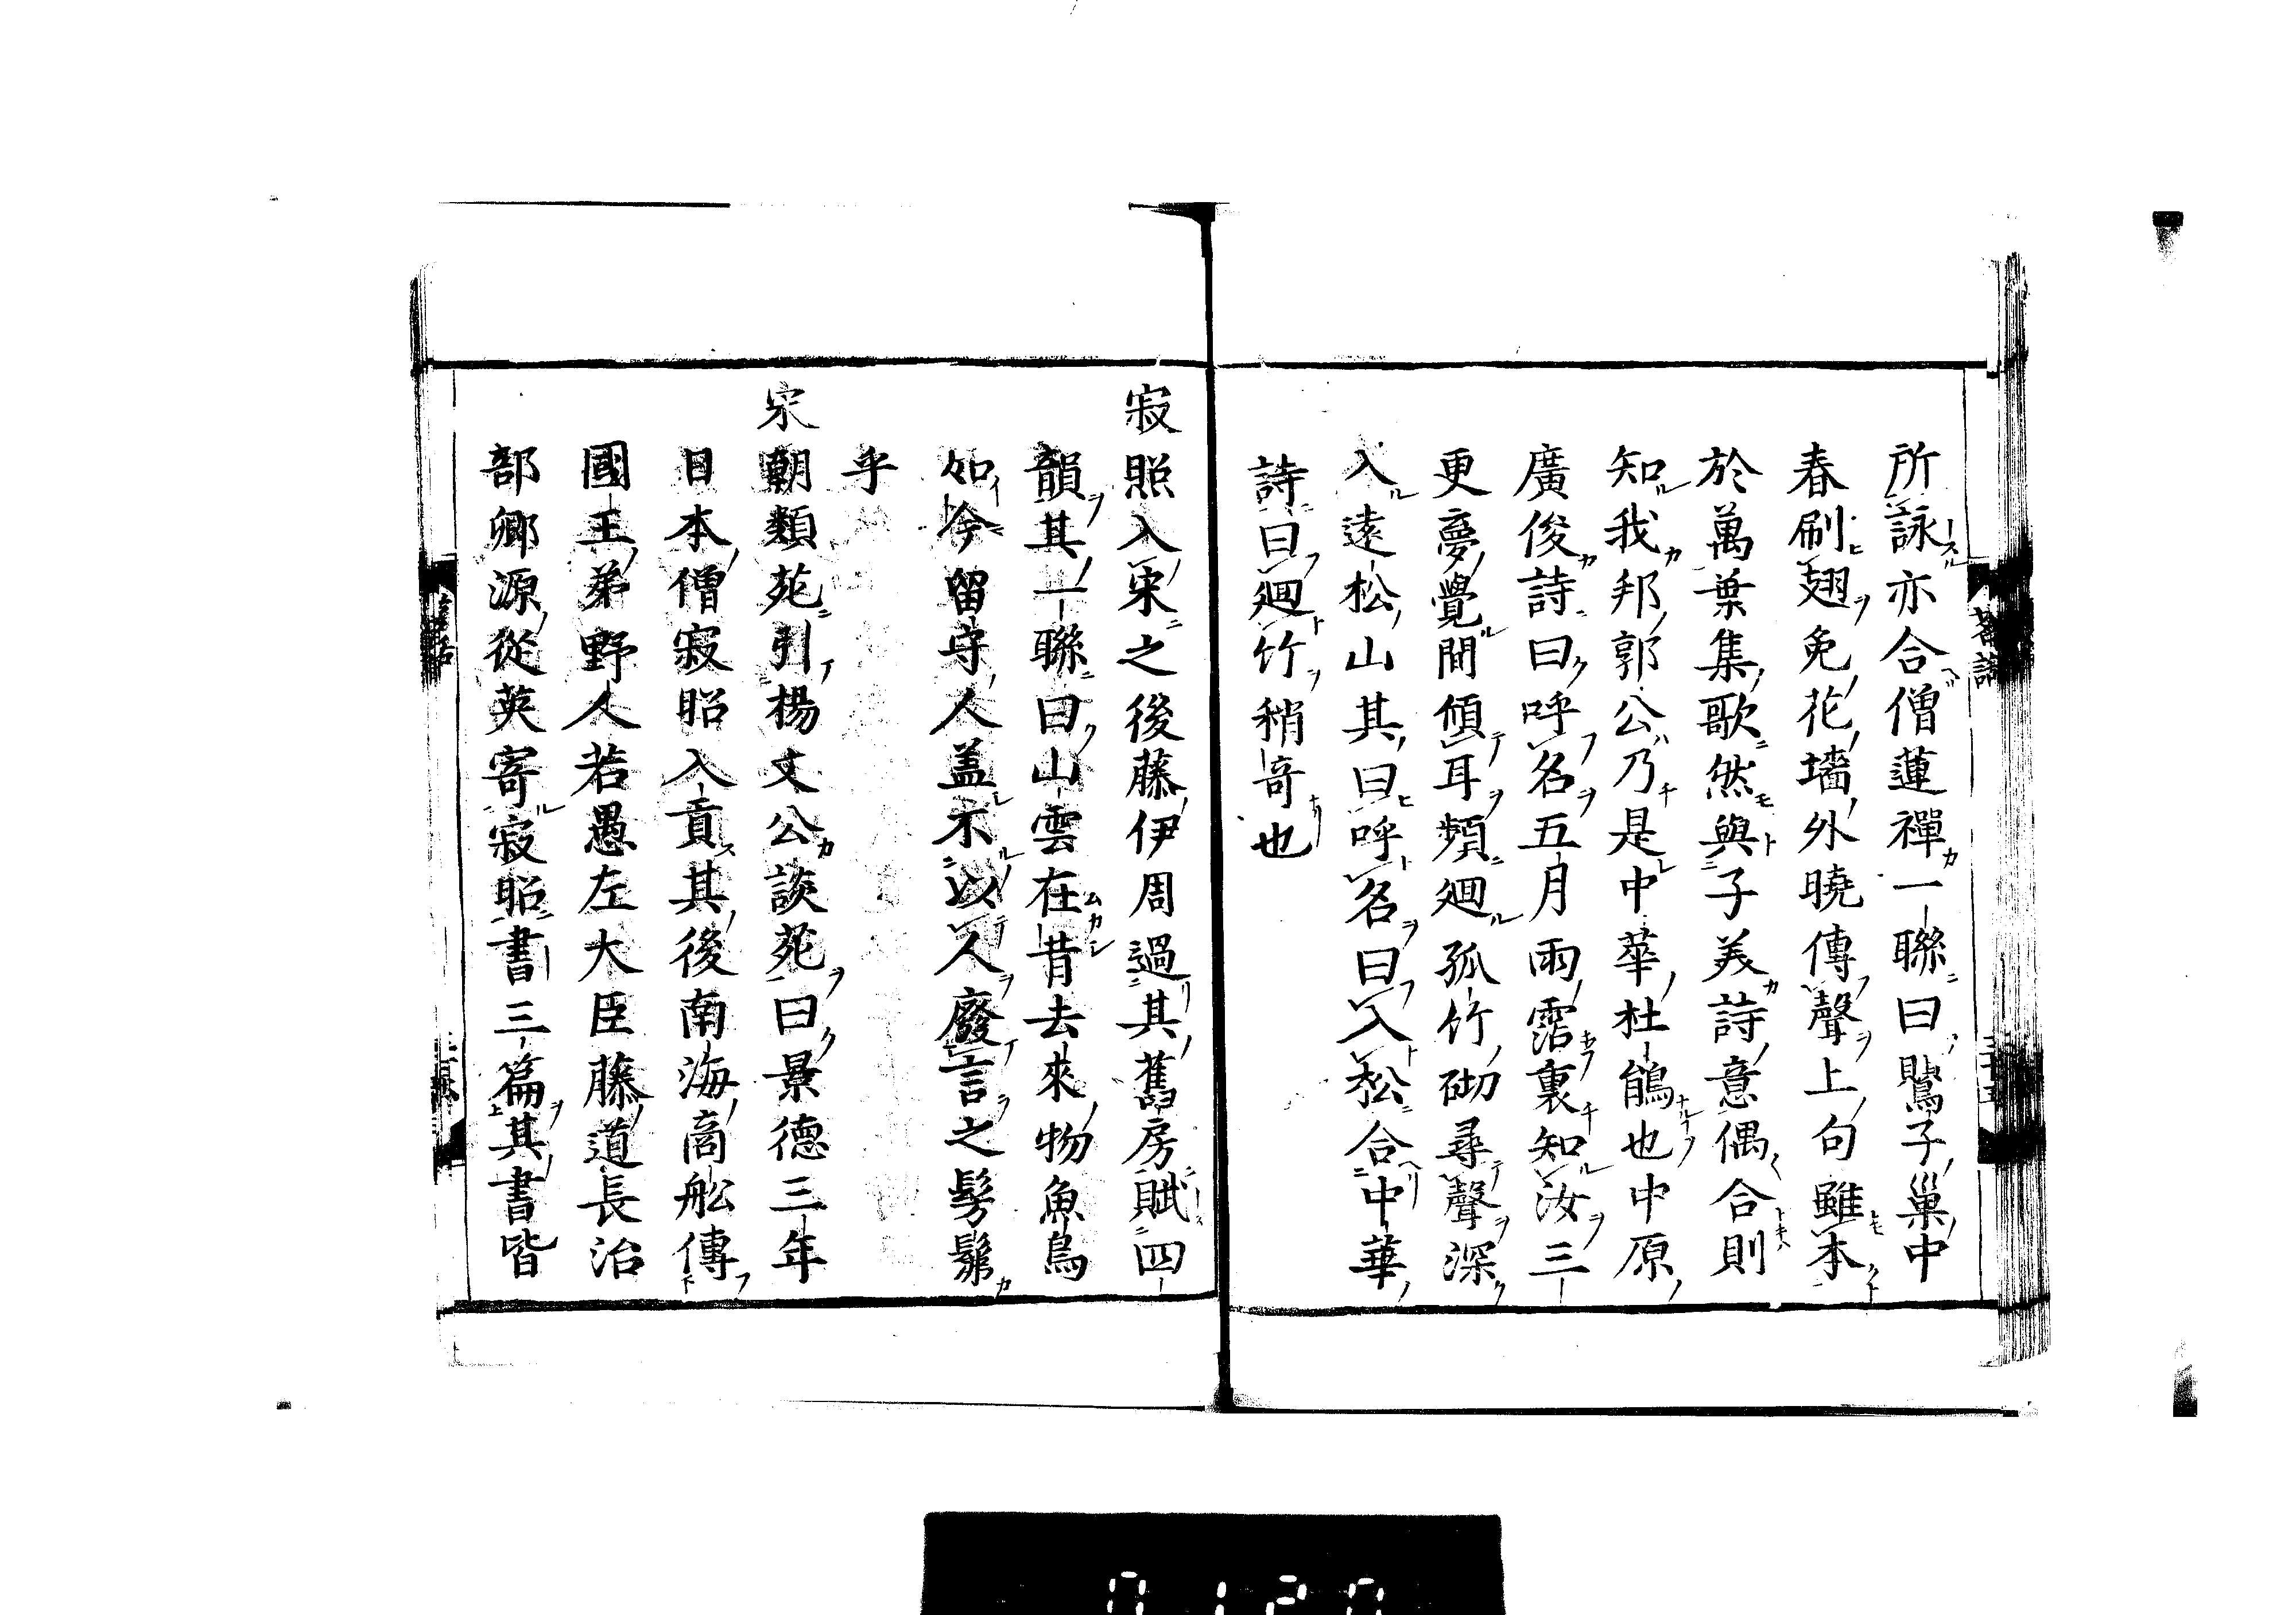 所詠亦合僧蓮禪一聯曰鶯子巢中
春刷翅兔花墻外曉傳聲上句雖本
於萬葉集歌然與子美詩意偶合則
知我邦郭公乃是中華杜鵑也中原
廣俊詩曰呼名五月雨霑裏知汝三
更夢覺間傾耳頻廻孤竹砌尋聲深
入遠松山其曰呼名曰入松合中華
詩曰廻竹稍奇也
寂照入宋之後藤伊周過其舊房賦四
韻其一聯曰山雲在昔去來物魚鳥
如今留守人盖不以人廢言之髣髴
乎
宋朝類苑引楊文公談苑曰景德三年
日本僧寂昭入貢其後南海商舩傳
國王弟野人若愚左大臣藤道長治
部卿源從英寄寂昭書三篇其書皆
0120